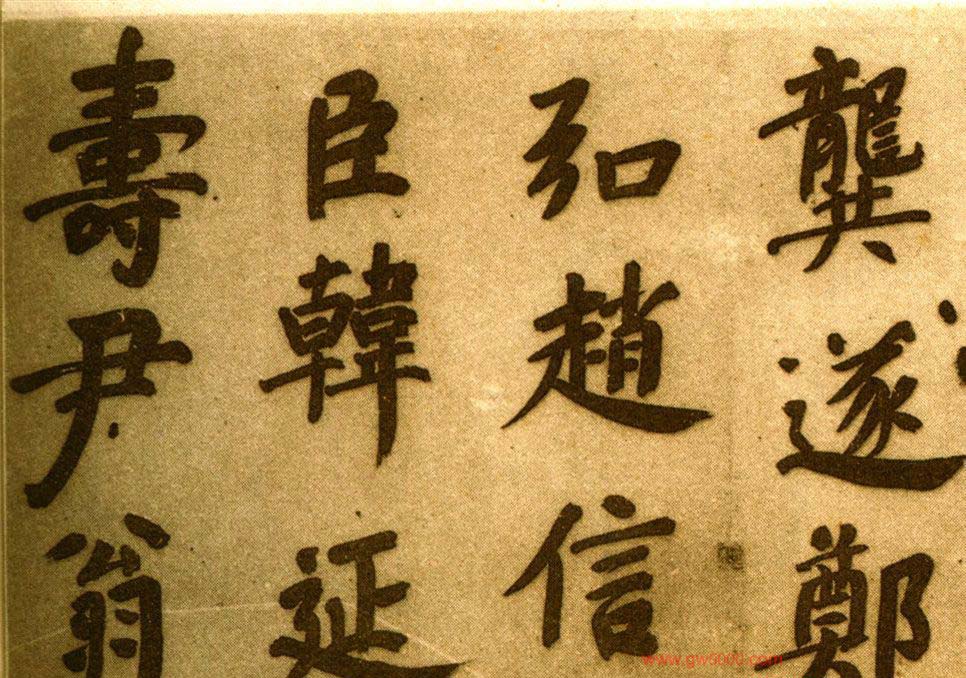 龔遂鄭
弘趙信
臣韓延
壽尹翁